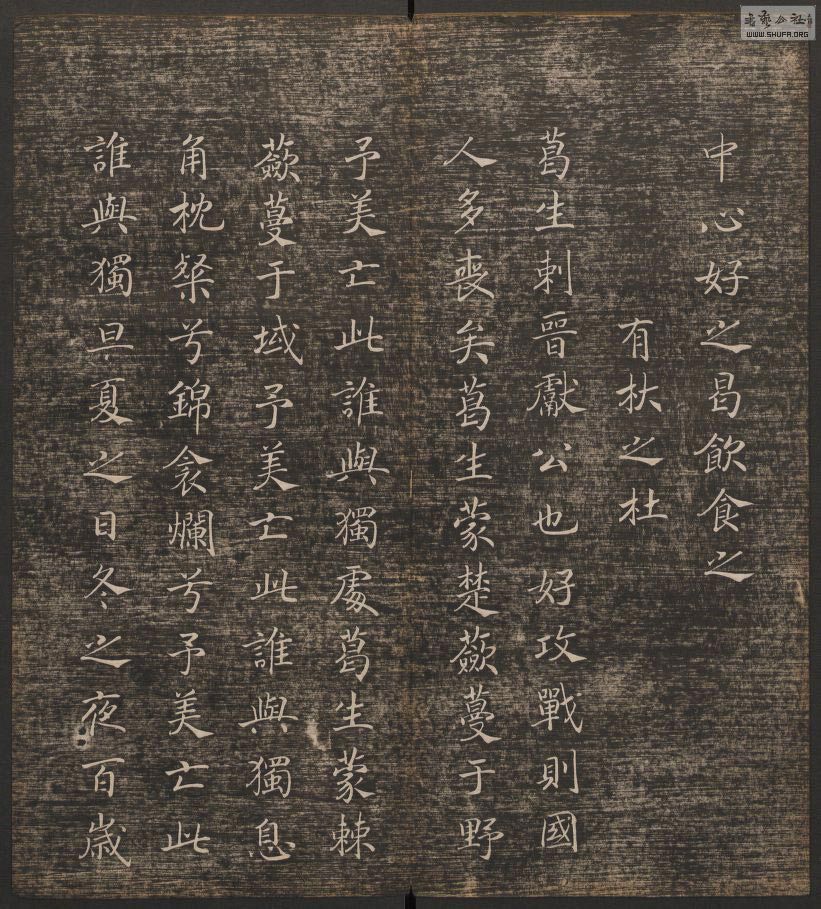 中心好之曷飲食之
有杕之杜
葛生刺晉獻公也好攻戰則國
人多喪矣葛生蒙楚蘞蔓于野
予美亡此誰與獨處葛生蒙棘
蘞蔓于域予美亡此誰與獨息
角枕粲兮錦衾爛兮予美亡此
誰與獨旦夏之日冬之夜百歲
WWW.SHUFA.ORG